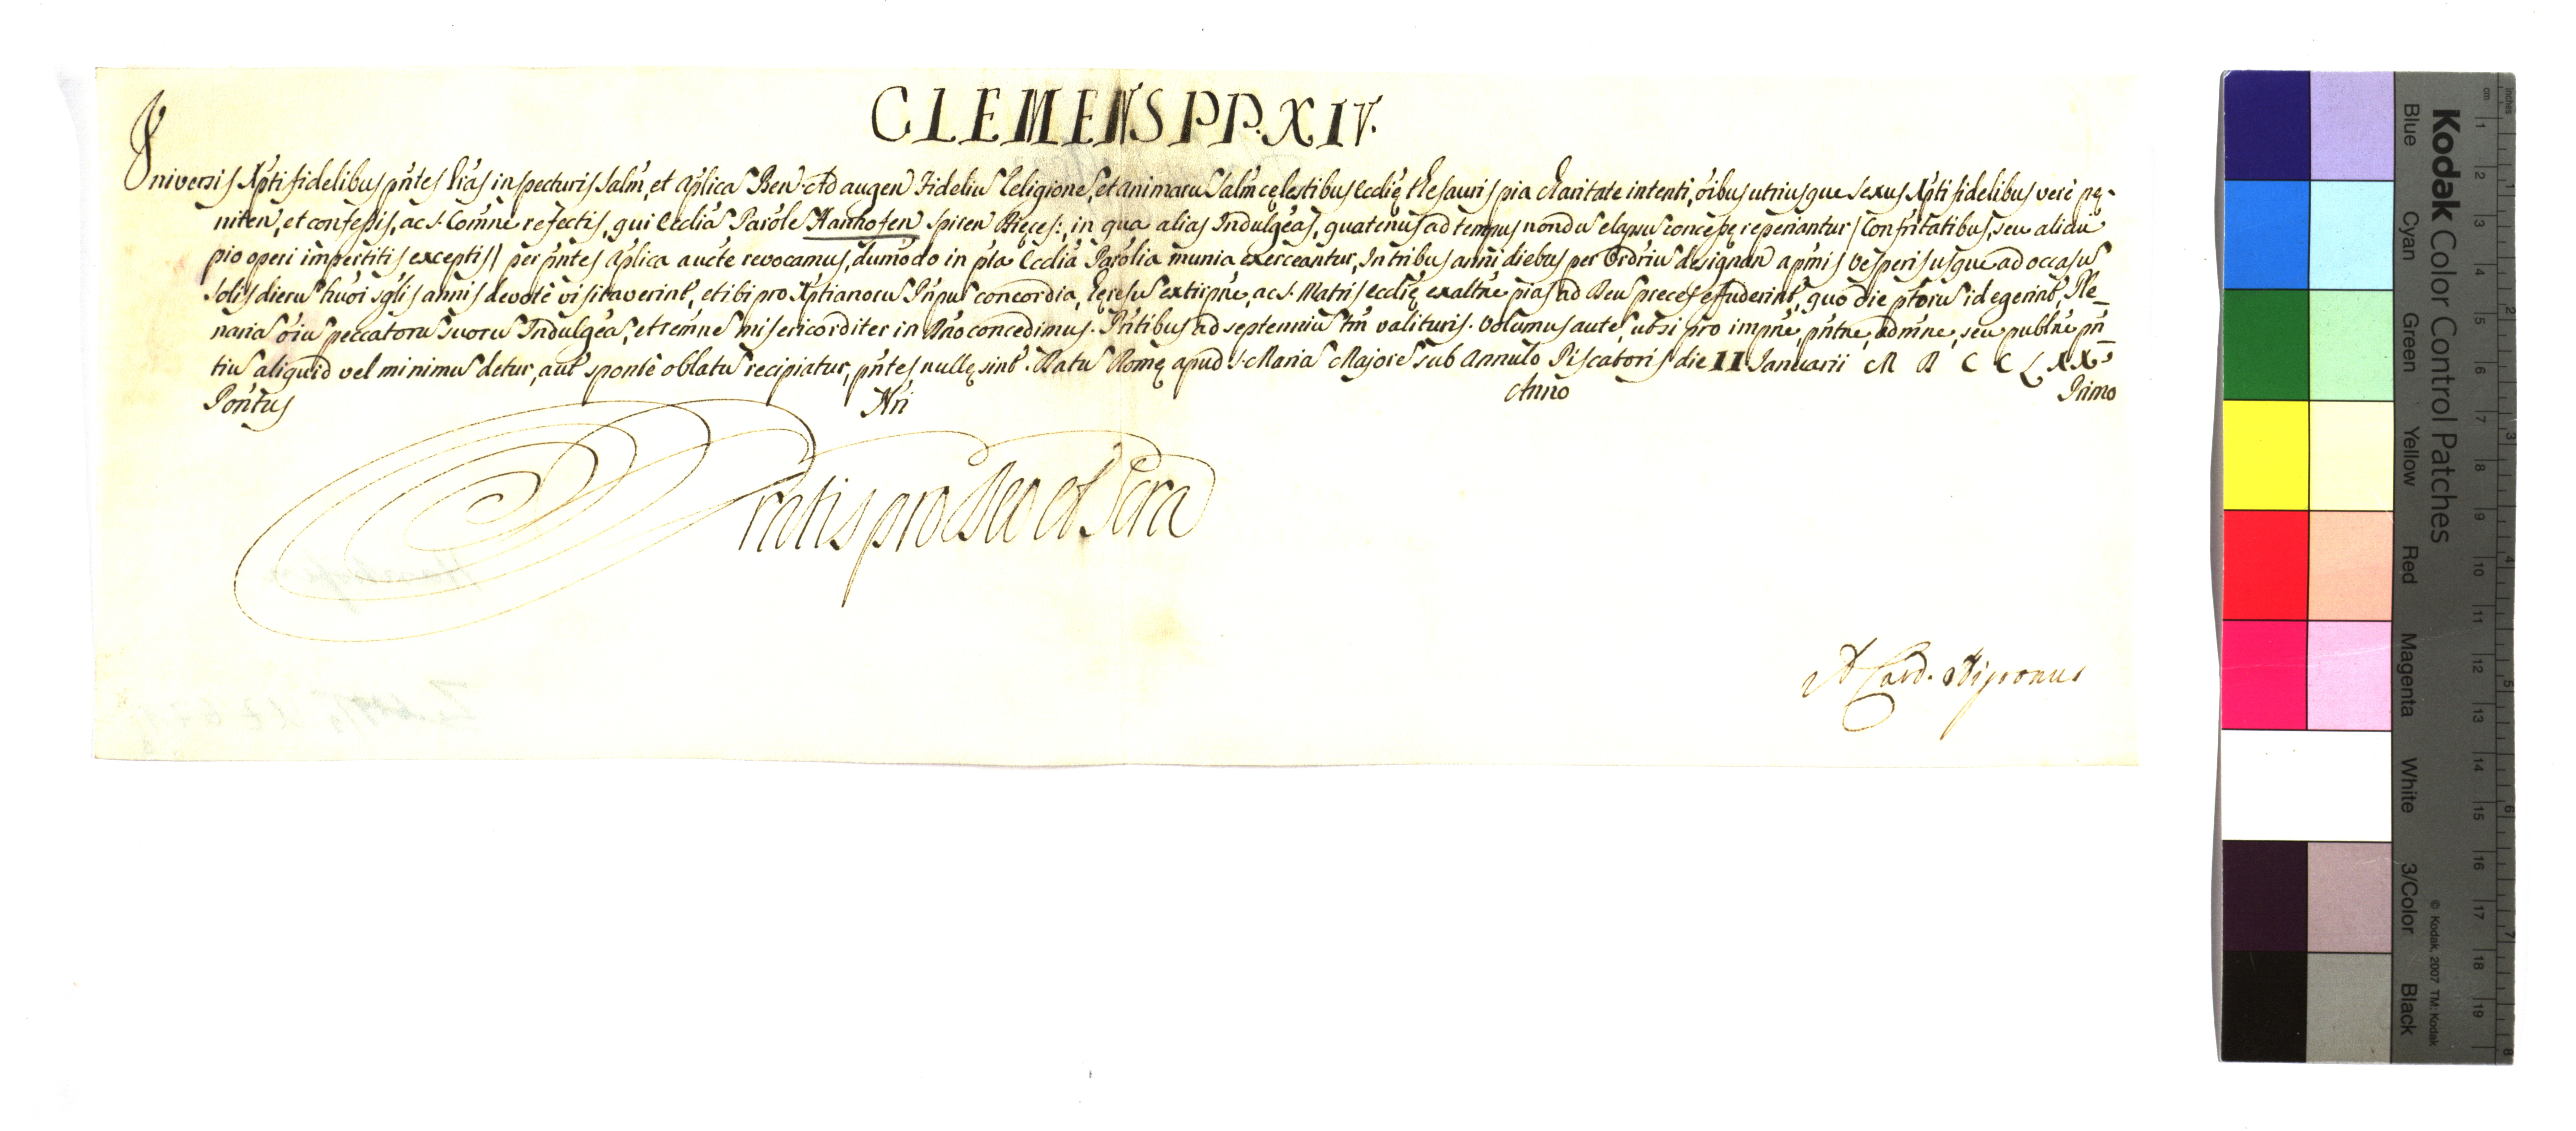 CLEMENS PP. XIV.
Universis Xpti fidelibus pńtes Lrás inspecturis Salm̃, et Aplicã Ben. Ad augen Fideliũ Religionẽ, et animarũ Salm̃ cęlestibus Ecclię thesauris pia charitate intenti, oíbus utriusque sexus Xpti fidelibus veré pę-
niten, et confessis, ac S. Comńe refectis, qui Ecclíã Parõle Hanhofen Spiren Dięces:, in qua alias Indulgéas, quatenus ad tempus nondũ elapsũ concessę reperiantur (Confrítatibus, seu alicui
pio operi impertitis exceptis) per pńtes Aplicã aucte revocamus, dum̃odo in pta Ecclíã Parõlia munia exerceantur, In tribus anni diebus per Ordriũ designan a pmis vesperis usque ad occasũ
Solis dierũ huõi sglis annis devoté visitaverint, et ibi pro Xptianorũ Pnpũ concordia, hęresũ extirpńe, ac S. Matris Ecclię exaltńe pias ad Deũ preces effuderint, quo die ptorũ id egerint, Ple_
nariã oiũ peccatorũ suorũ Indulgéã, et remńe misericorditer in Dńo concedimus. Pńtibus ad septenniũ tm̃ valituris. Volumus autẽ, ut si pro impńe, pńtne, admńe, seu publńe pń_
tiũ aliquid vel minimũ detur, aut sponté oblatũ recipiatur, pńtes nullę sint. Datũ Romę apud S. Mariã Majorẽ sub Annulo Piscatoris die II Januarii M D C C L XX.
Pontus Nri Anno Primo
Gratis pro Deo et Scra
A Card. Nigronus
Kodak Color Control Patches
Blue Cyan Green Yellow Red Magenta White 3/Color Black
© Kodak, 2007 TM: Kodak
inches 1 2 3 4 5 6 7 8
cm 1 2 3 4 5 6 7 8 9 10 11 12 13 14 15 16 17 18 19